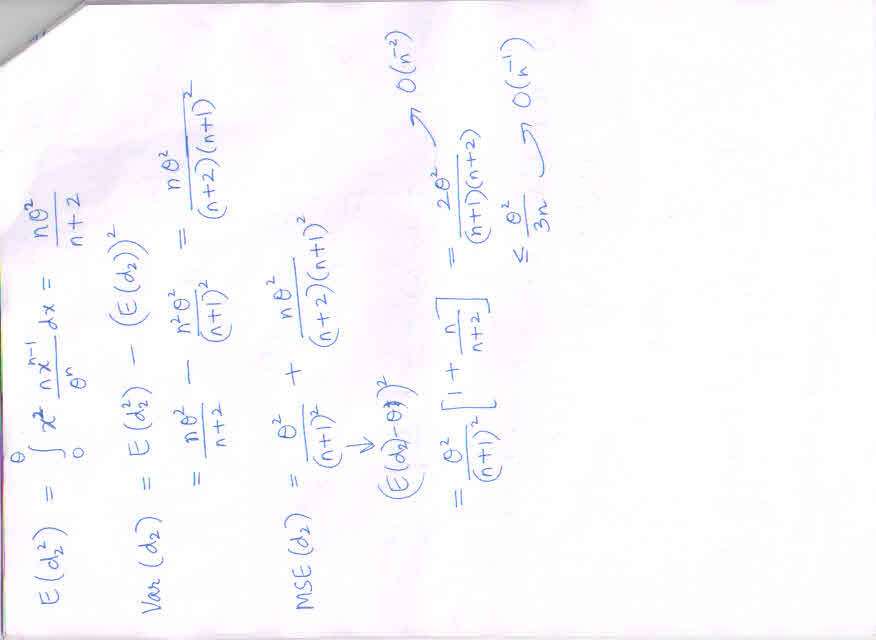 E(d₂²) = ∫₀^θ x² (nxⁿ⁻¹)/(θⁿ) dx = nθ²/(n+2)
Var(d₂) = E(d₂²) − (E(d₂))²
= nθ²/(n+2) − n²θ²/(n+1)² = nθ²/((n+2)(n+1)²)
MSE(d₂) = θ²/(n+1)² + nθ²/((n+2)(n+1)²)
↓
(E(d₂)−θ)²
= θ²/(n+1)² [1 + n/(n+2)] = 2θ²/((n+1)(n+2)) → O(n⁻²)
≤ θ²/(3n) → O(n⁻¹)